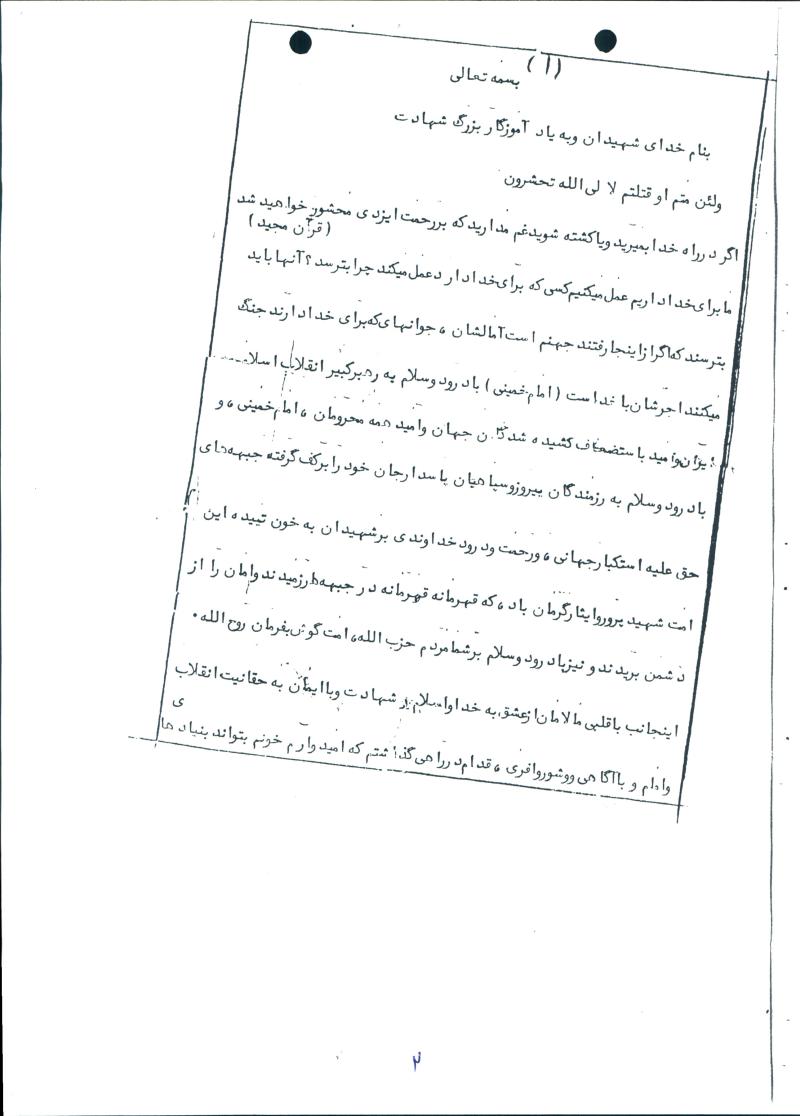 (۱)
بسمه تعالی
بنام خدای شهیدان وبه یاد آموزگار بزرگ شهادت
ولئن متم او قتلتم لا لی الله تحشرون
اگر در راه خدا بمیرید ویا کشته شوید غم مدارید که بررحمت ایزدی محشور خواهید شد
(قرآن مجید)
ما برای خدا داریم عمل میکنیم کسی که برای خدا دارد عمل میکند چرا بترسد؟ آنها باید
بترسند که اگر از اینجا رفتند جهنم است آمالشان ، جوانهای که برای خدا دارند جنگ
میکنند اجرشان با خدا است (امام خمینی) با درود وسلام به رهبر کبیر انقلاب اسلا
ایران وامید باستضعاف کشیده شدگان جهان وامید همه محرومان ، امام خمینی ، و
با درود وسلام به رزمندگان پیروز وسپاهیان پاسدار جان خود را برکف گرفته جبهه های
حق علیه استکبار جهانی ، ورحمت ودرود خداوندی برشهیدان به خون تپیده این
امت شهید پرور وایثارگرمان باد ، که قهرمانه قهرمانه در جبهه ها رزمیدند وامان را از
دشمن بریدند و نیز با درود وسلام برشما مردم حزب الله ، امت گوش بفرمان روح الله .
اینجانب با قلبی مالامان از عشق به خدا واسلام بر شهادت وبا ایمان به حقانیت انقلاب
وامام و با آگاهی ووشور وافری ، قدام در راهی گذاشتم که امیدوارم خونم بتواند بنیاد های
۲